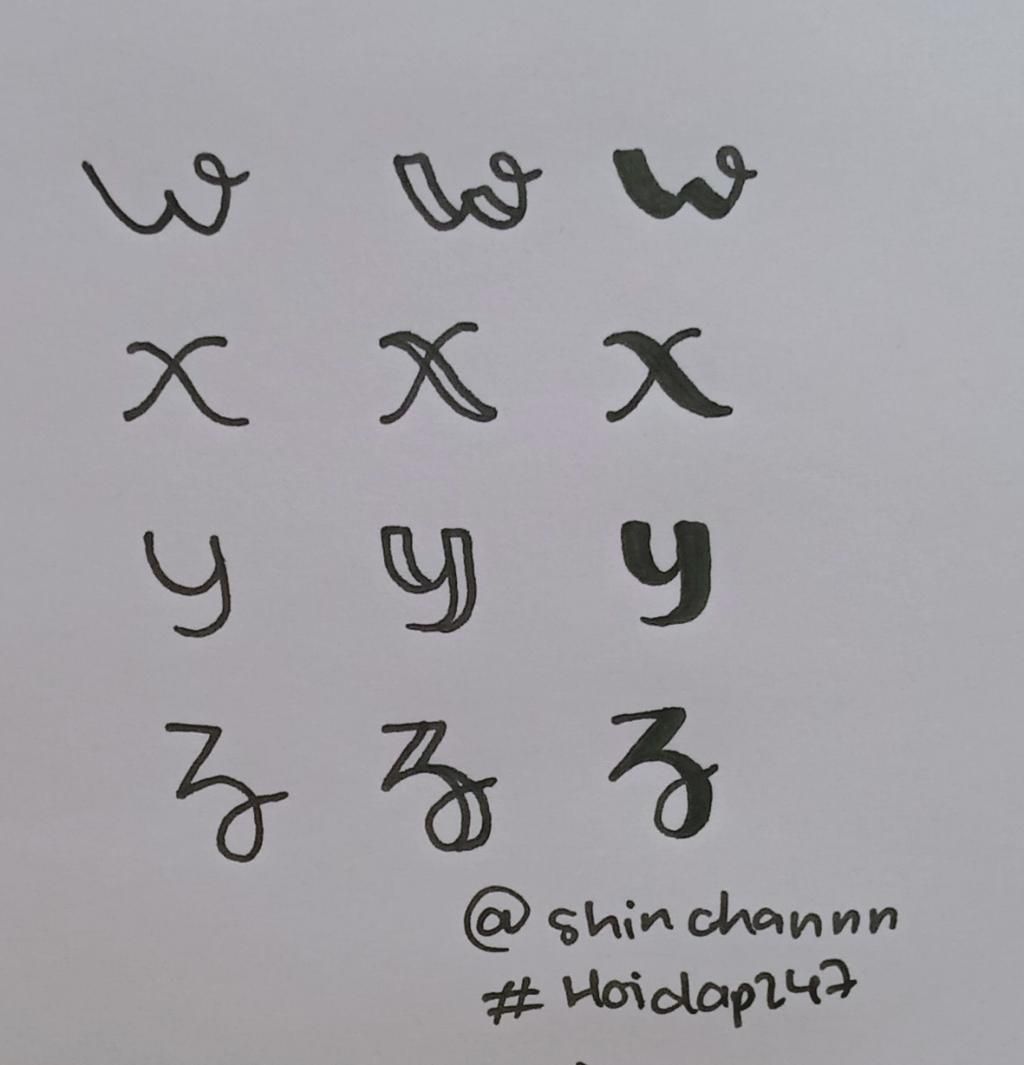 w w w
x x x
y y y
z z z
@shinchannn
#Hoidap247